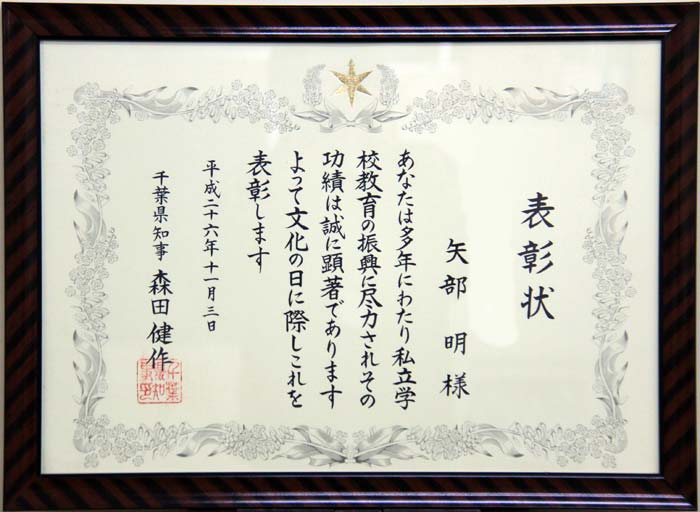 表彰状
矢部明様
あなたは多年にわたり私立学
校教育の振興に尽力されその
功績は誠に顕著であります
よって文化の日に際しこれを
表彰します
平成二十六年十一月三日
千葉県知事 森田健作